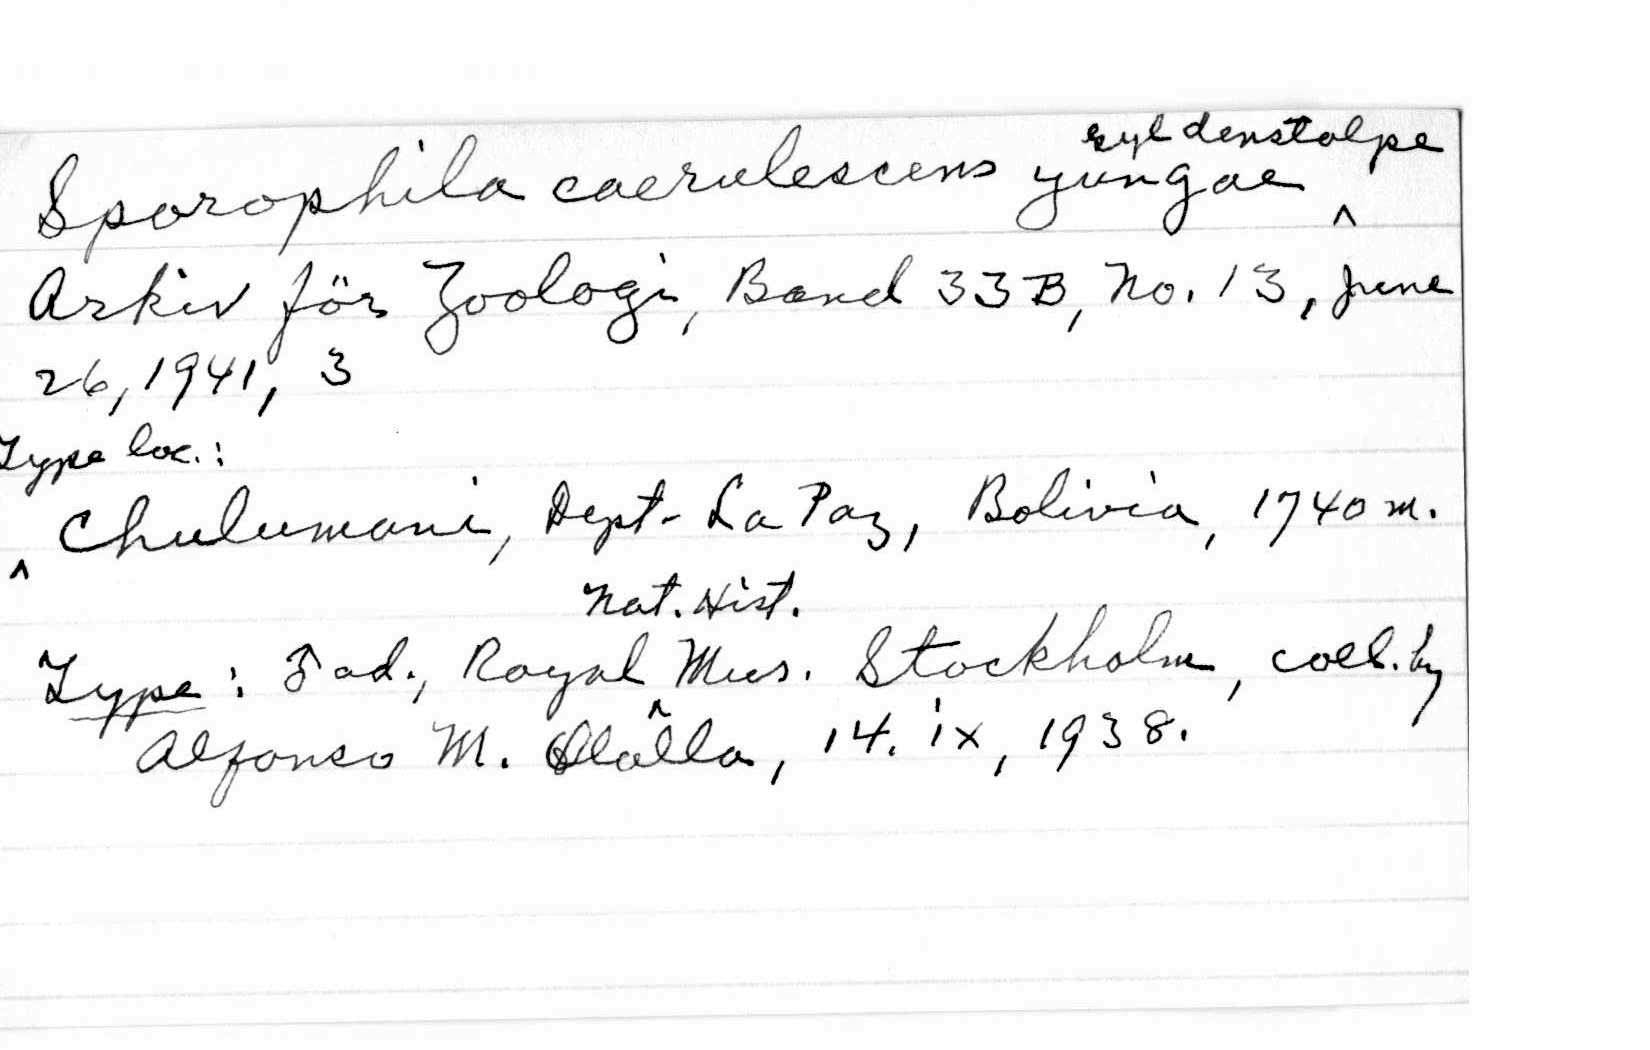 Gyldenstolpe
Sporophila caerulescens yungae ^
Arkiv för Zoologi, Band 33B, No. 13, June
26, 1941, 3
Type loc.:
^ Chulumani, Dept. La Paz, Bolivia, 1740 m.
Nat. Hist.
Type: ad., Royal Mus. ^ Stockholm, coll. by
Alfonso M. Olalla, 14. ix, 1938.